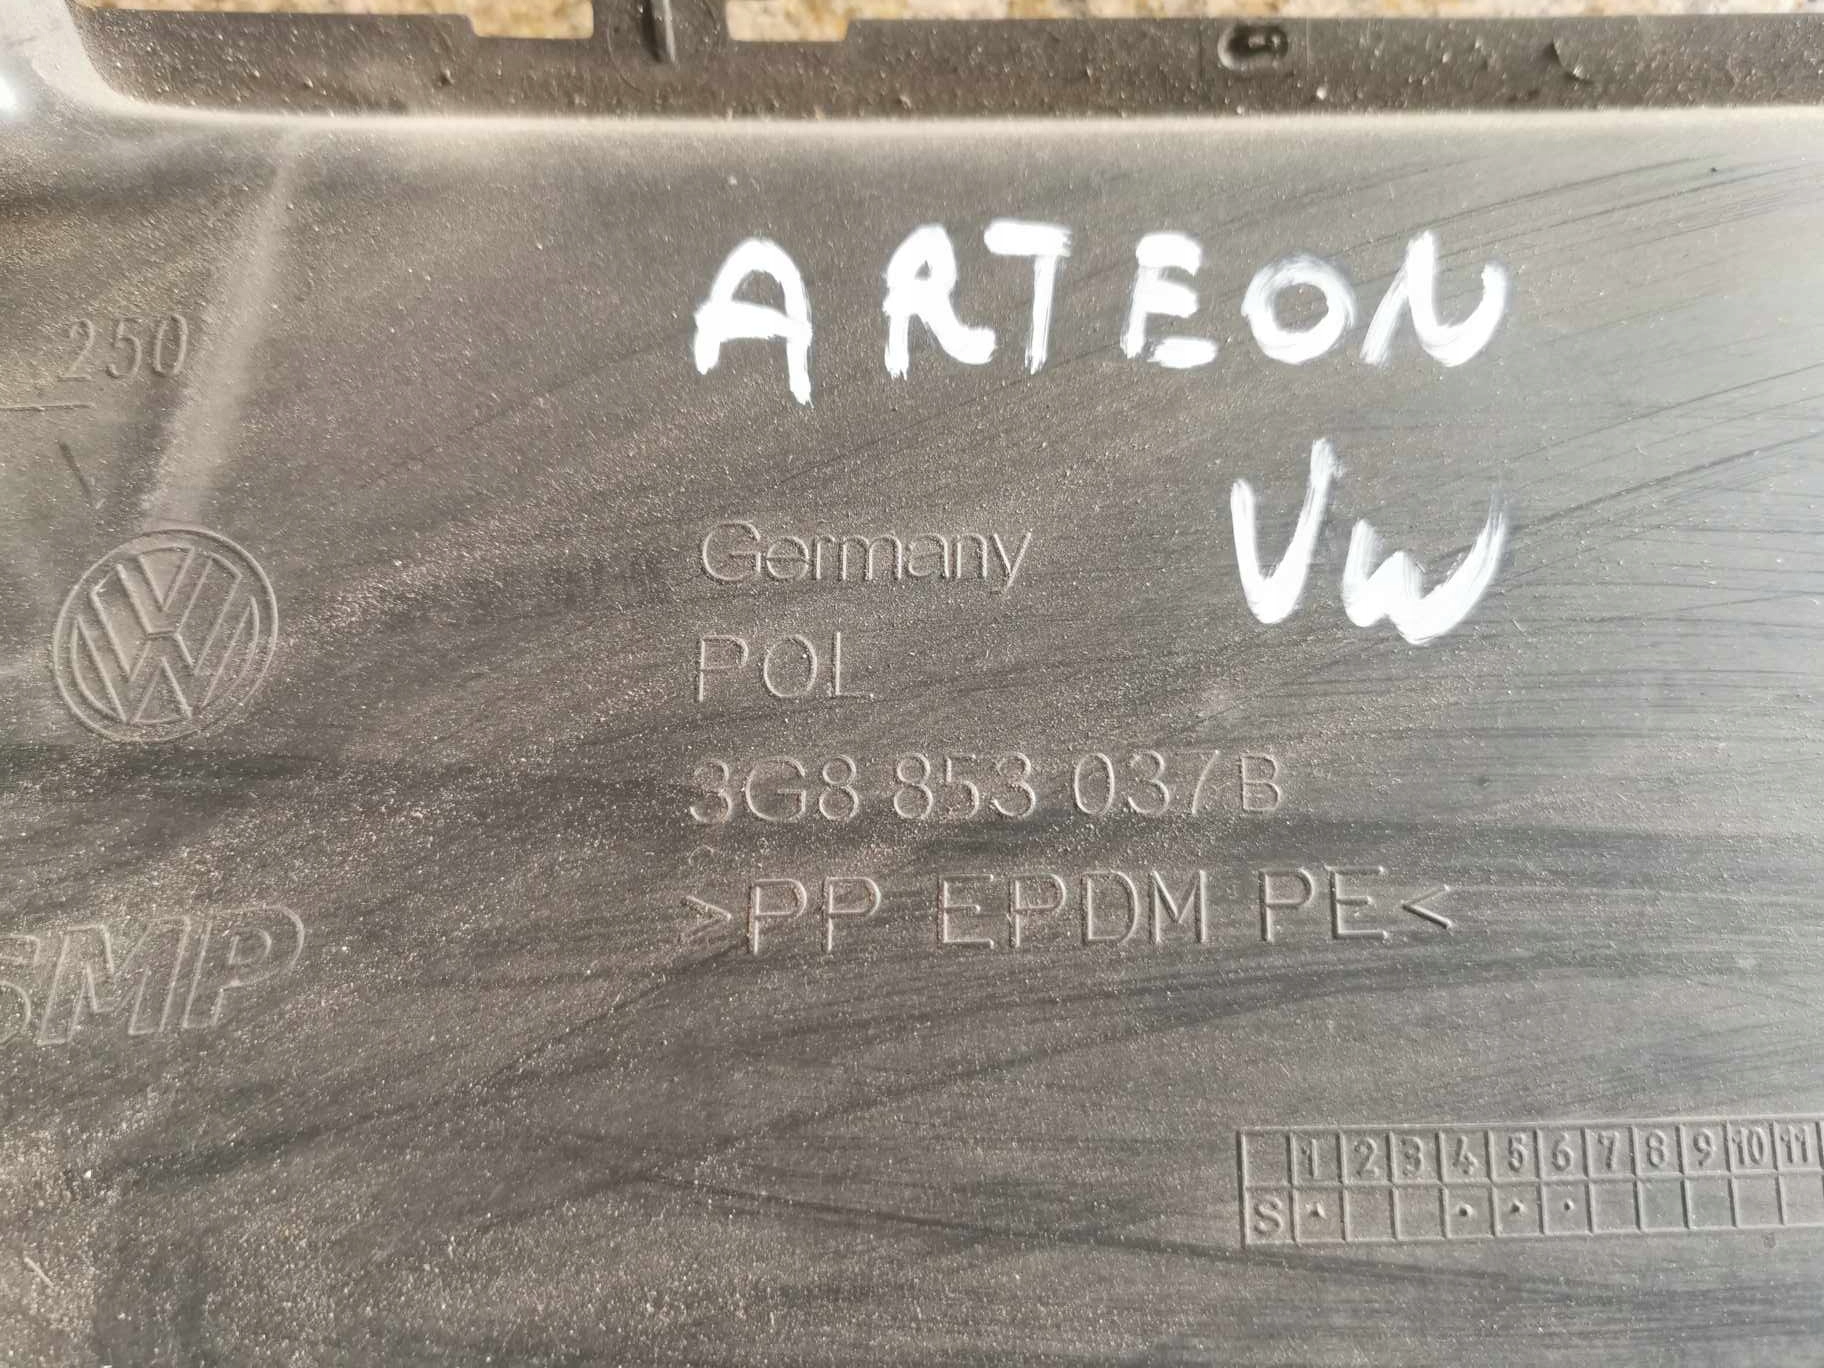 ARTEON
250
VW
Germany
POL
3G8 853 037B
>PP EPDM PE<
SMP
1 2 3 4 5 6 7 8 9 10 11
S